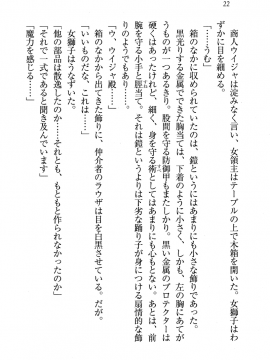 22
商人ウイジャは淀みなく言い、女領主はテーブルの上で木箱を開いた。女獅子はわ
ずかに目を細める。
「……うむ」
箱のなかに収められていたのは、鎧というにはあまりにも小さな飾りであった。
黒光りする金属でできた胸当ては、下着のように小さく、しかも、左の胸にあてが
うものが一つあるきり。股間を守る防御甲もまたしかり。黒い金属のプロテクターは
硬くはあったけれど、細く、身を守る術としてはあまりにも心もとない。あとは、前
腕を守る小手と具足。それは鎧というよりは下劣な踊り子が身につける扇情的な飾
「ウ、ウイジャ殿……」
「いいものだな、これは……」
箱のなかから出てきた飾りに、仲介者のラウザは目を白黒させている。だが。
女獅子はうなずいた。
「他の部品は散逸したのか……それとも、もともと作られなかったのか」
「それで一式であると聞き及んでいます」
「魔力を感じる……」